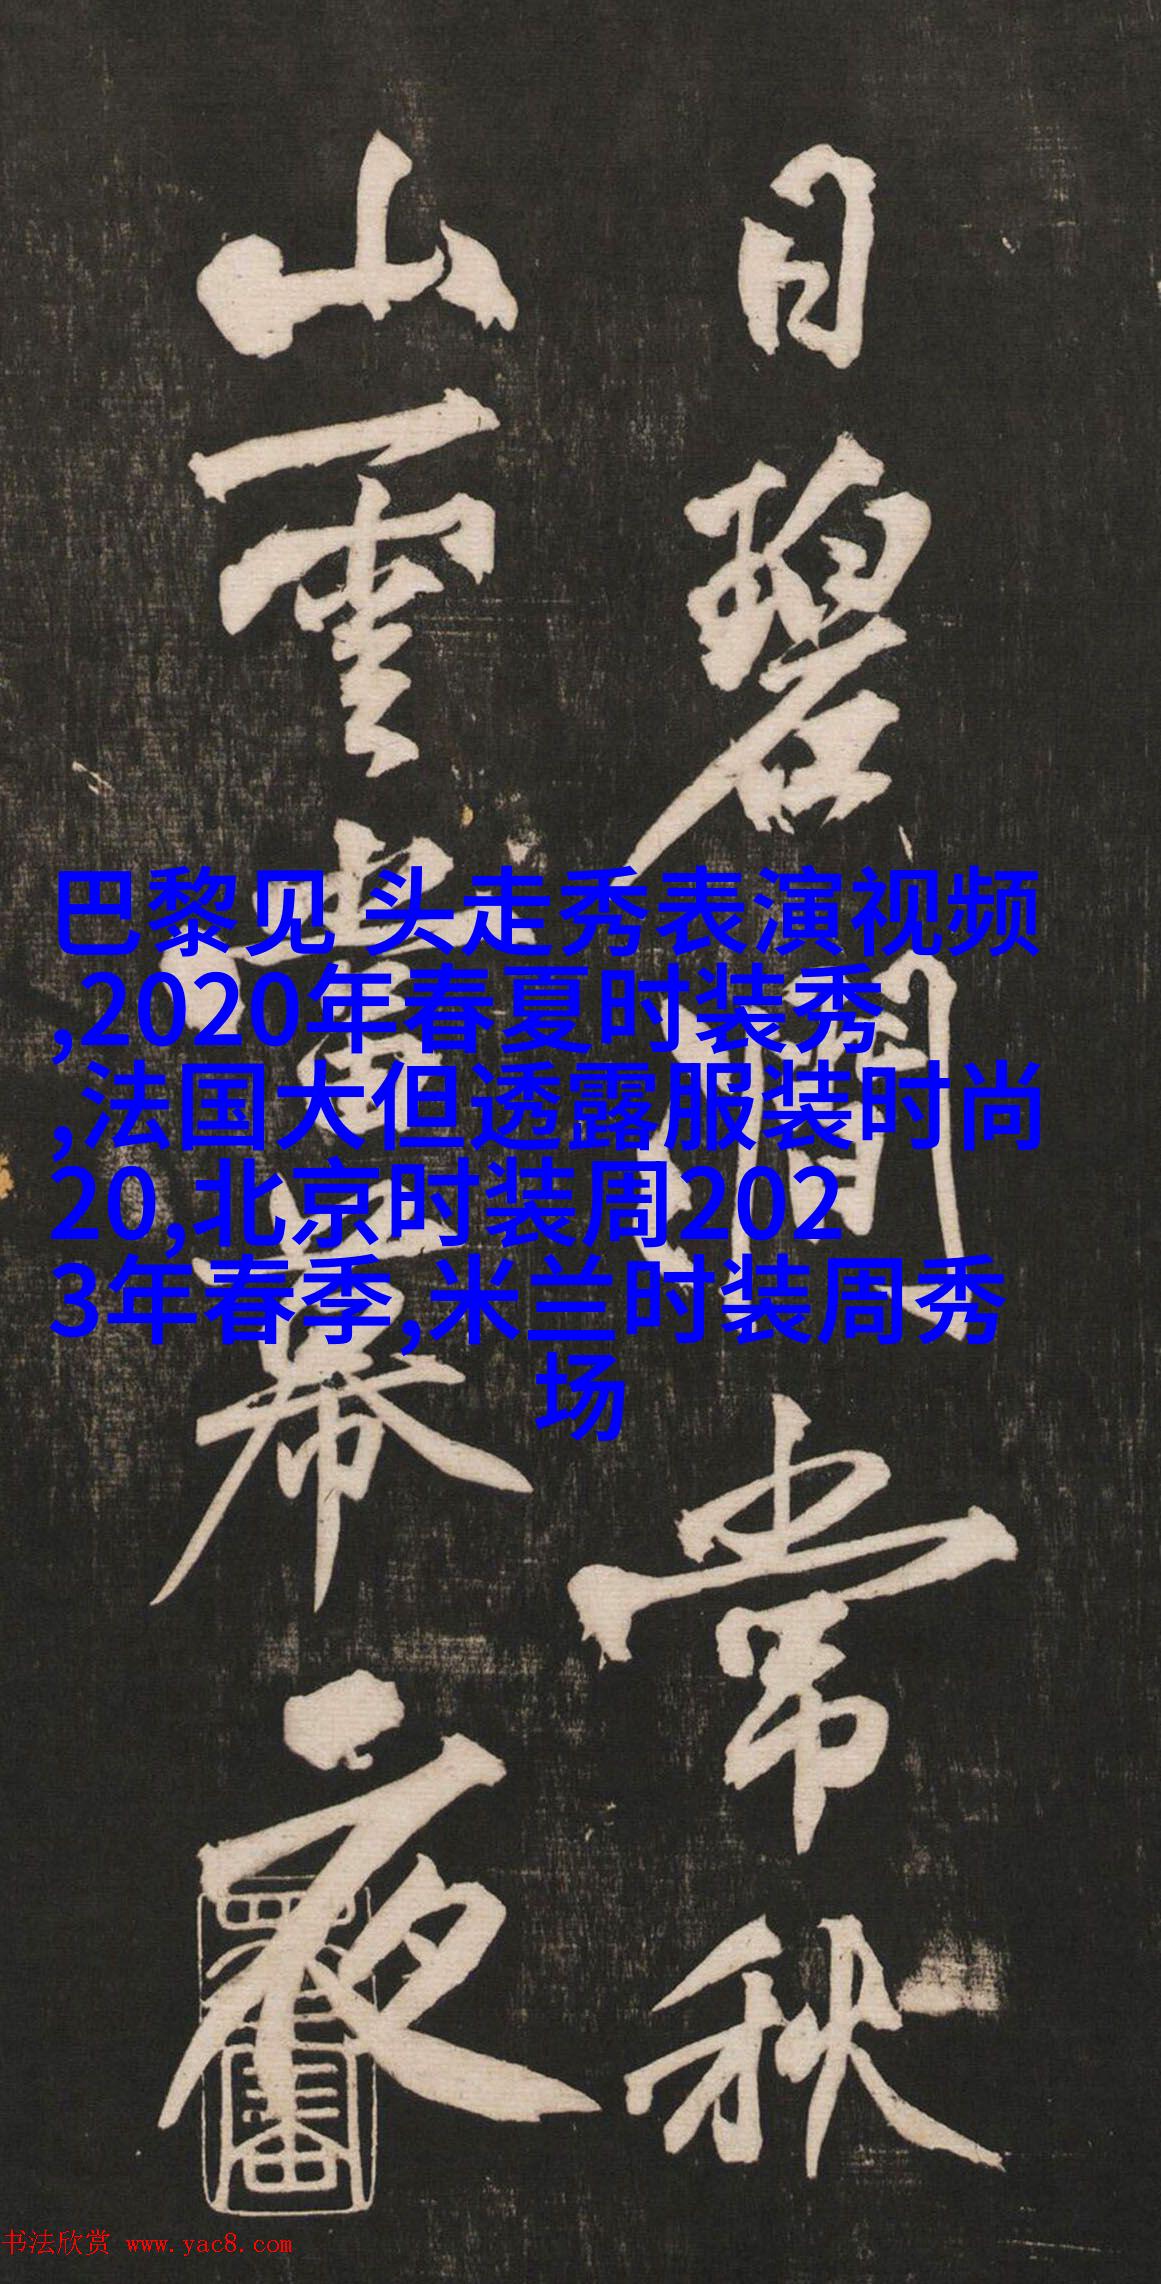 日碧澗常秋
山雲畫幕夜
巴黎见 头走秀表演视频
,2020年春夏时装秀
,法国大但透露服装时尚
20,北京时装周202
3年春季,米兰时装周秀
场
书法欣赏 www.yac8.com